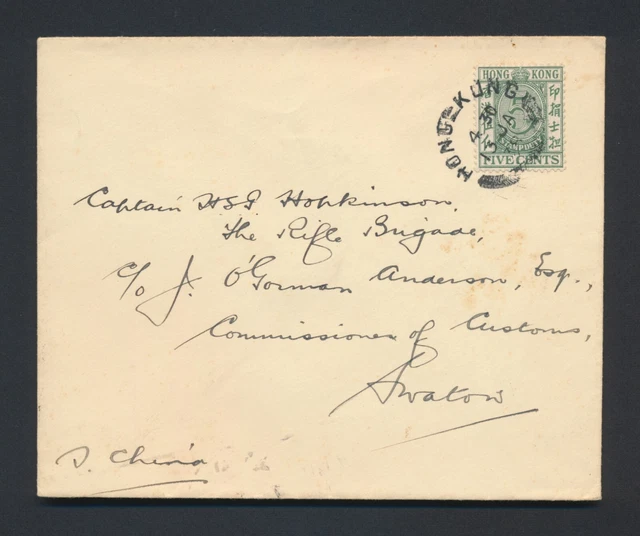 HONG KONG
印捐士担
STAMP DUTY
FIVE CENTS
HONG KONG
4.30
Captain H S J Hopkinson,
The Rifle Brigade,
c/o J. O'Gorman Anderson, Esq.,
Commissioner of Customs,
Swatow
S. China